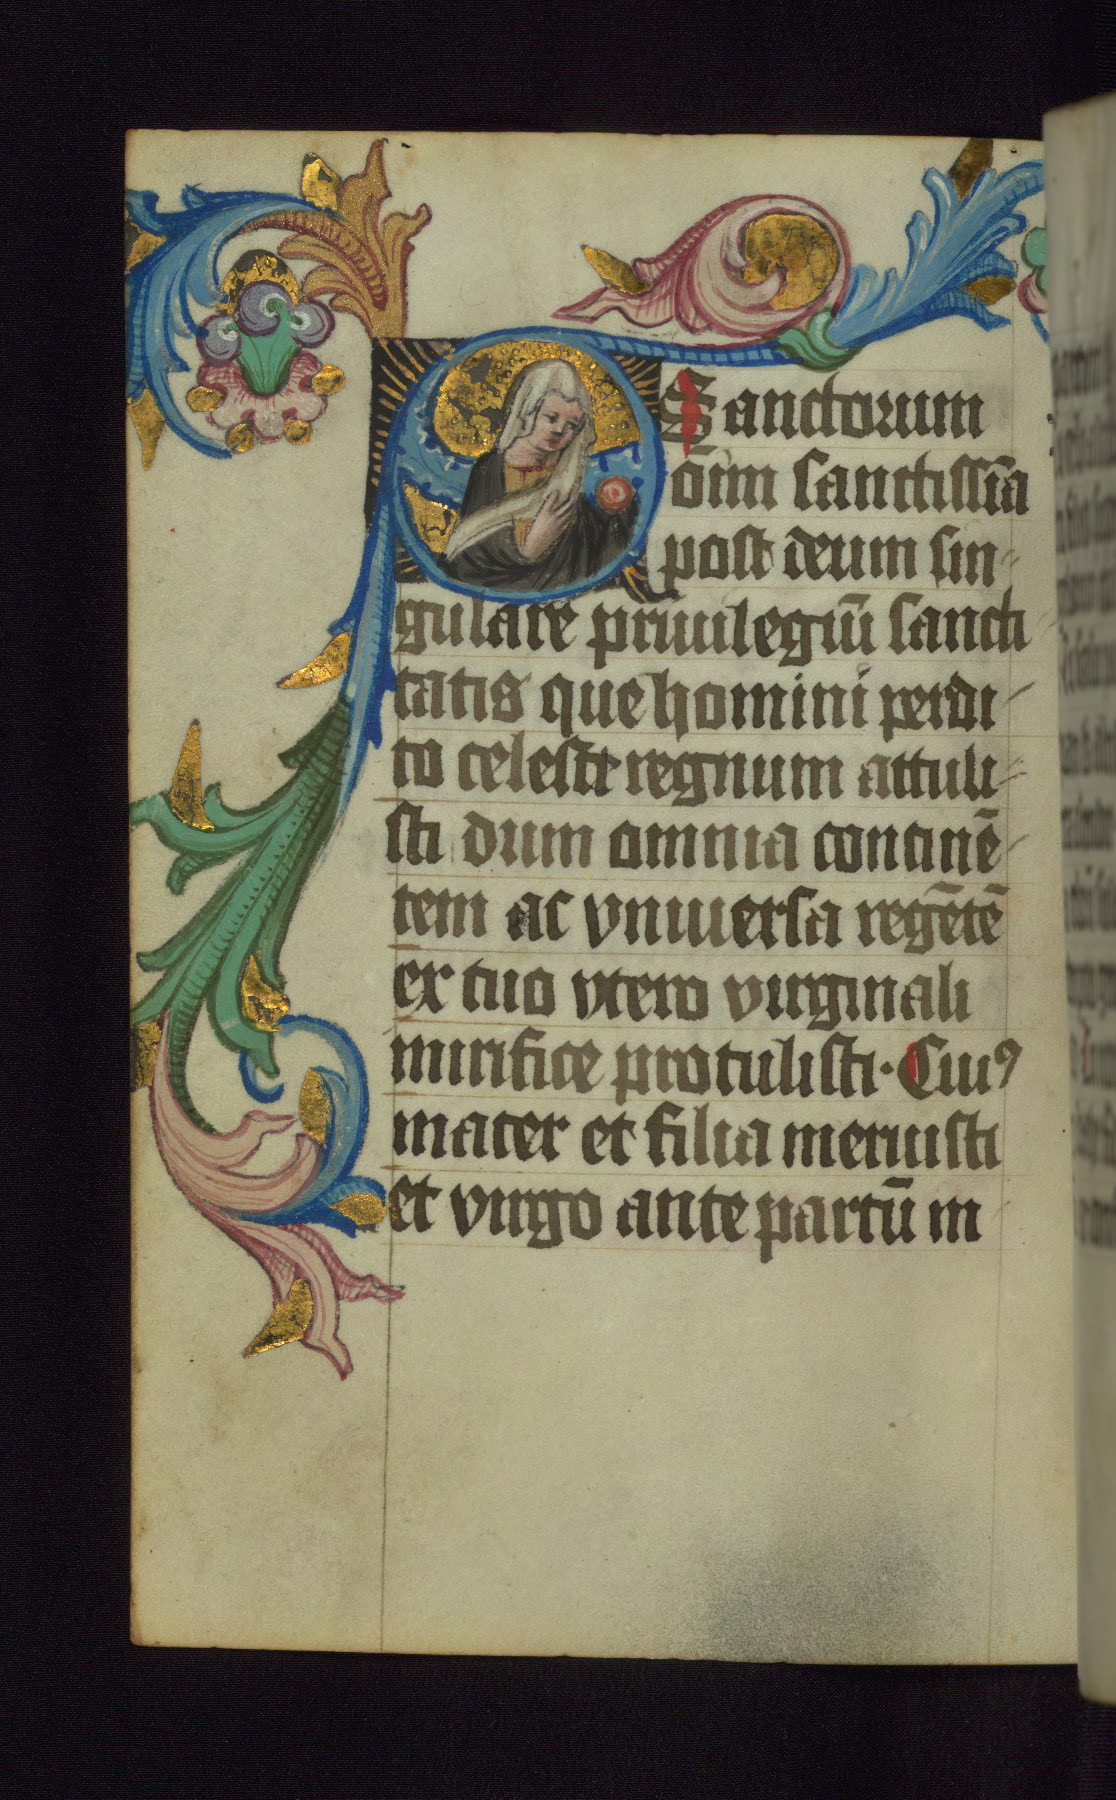 O Sanctorum
om̄m sanctissīa
post deum sin-
gulare priuilegiū sancti-
tatis que homini perdi-
to celeste regnum attuli-
sti dum omnia continē-
tem ac vniuersa regētē
ex tuo vtero virginali
mirifice protulisti. Cuiꝰ
mater et filia meruisti
et virgo ante partū in